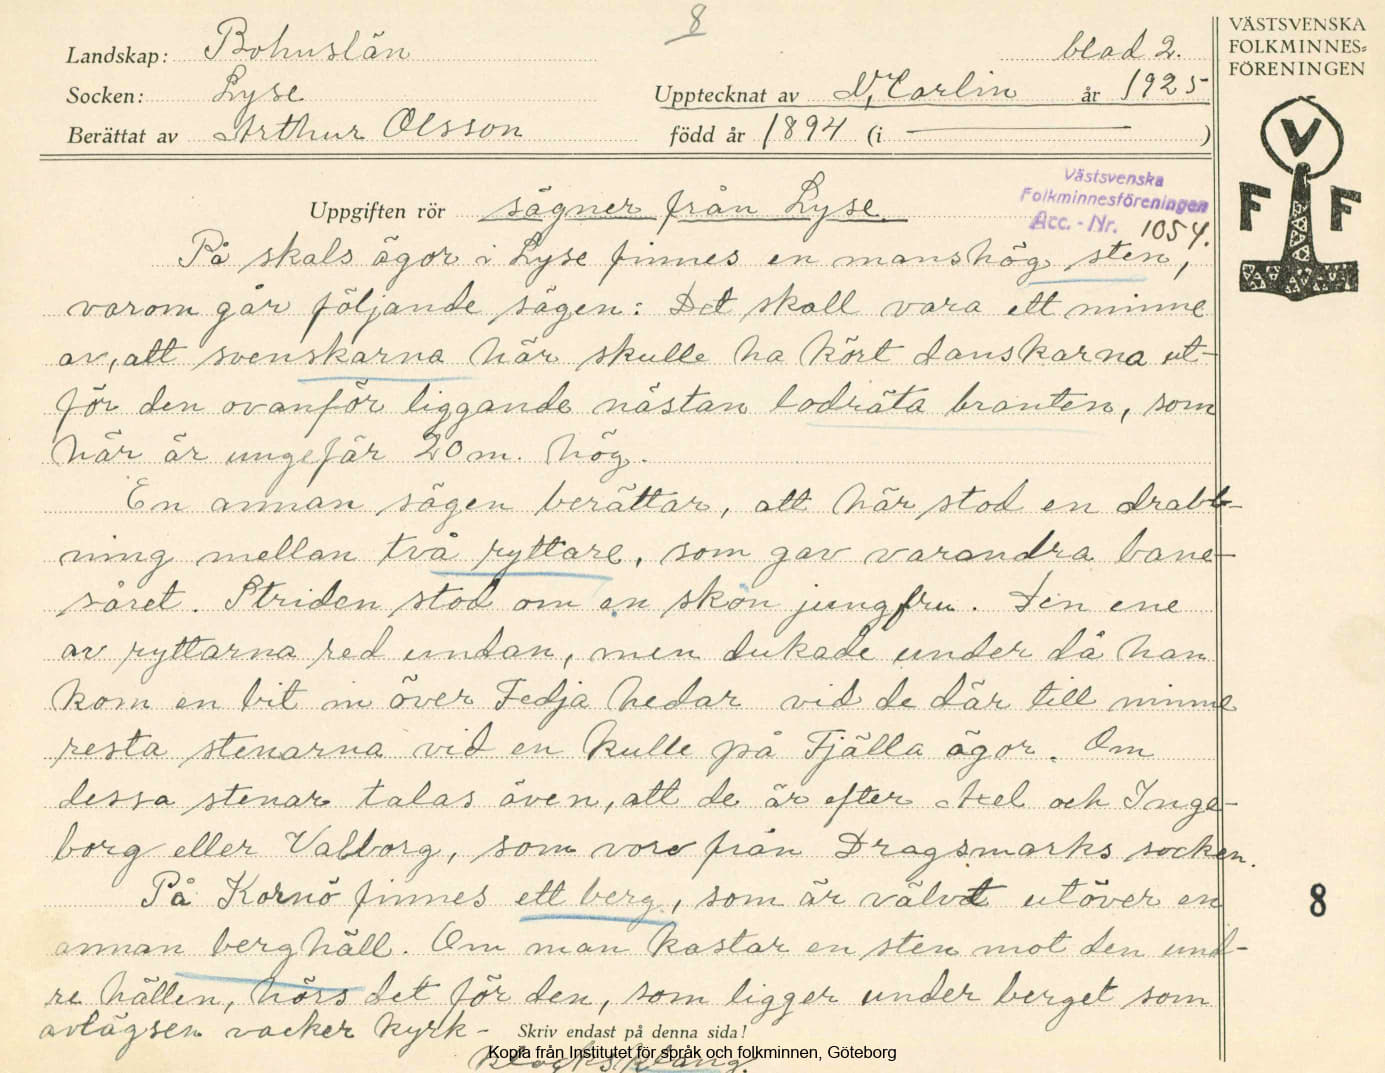 8
Landskap: Bohuslän
blad 2.
Socken: Lyse
Upptecknat av N. Carlin år 1925
Berättat av Arthur Olsson
född år 1894 (i — )
VÄSTSVENSKA
FOLKMINNES=
FÖRENINGEN
V
F F
Västsvenska
Folkminnesföreningen
Acc. - Nr. 1054.
Uppgiften rör sägner från Lyse.
På skals ägor i Lyse finnes en manshög sten,
varom går följande sägen: Det skall vara ett minne
av, att svenskarna här skulle ha kört danskarna ut-
för den ovanför liggande nästan lodräta branten, som
här är ungefär 20 m. hög.
En annan sägen berättar, att här stod en drabb-
ning mellan två ryttare, som gav varandra bane-
såret. Striden stod om en skön jungfru. Den ene
av ryttarna red undan, men dukade under då han
kom en bit in över Fedja hedar vid de där till minne
resta stenarna vid en kulle på Fjälla ägor. Om
dessa stenar talas även, att de är efter Axel och Inge-
borg eller Valborg, som voro från Dragsmarks socken.
På Kornö finnes ett berg, som är välvt utöver en
annan berghäll. Om man kastar en sten mot den und-
re hällen, hörs det för den, som ligger under berget som
avlägsen vacker kyrk-
klocksklang.
Skriv endast på denna sida!
Kopia från Institutet för språk och folkminnen, Göteborg
8